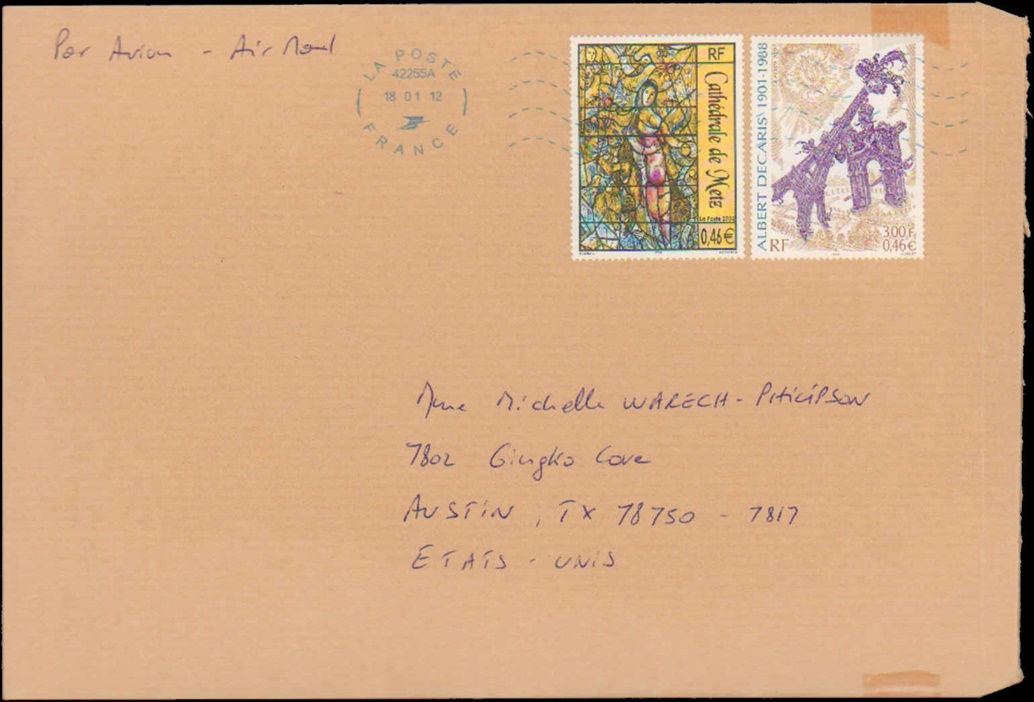 Par Avion - Air Mail
LA POSTE
42255A
18 01 12
FRANCE
RF
Cathédrale de Metz
La Poste
0,46€
ALBERT DECARIS 1901-1988
RF
3,00F
0,46€
Mme Michelle WARECH - PHILIPSON
7802 Gingko Cove
AUSTIN, TX 78750 - 7817
ETATS - UNIS